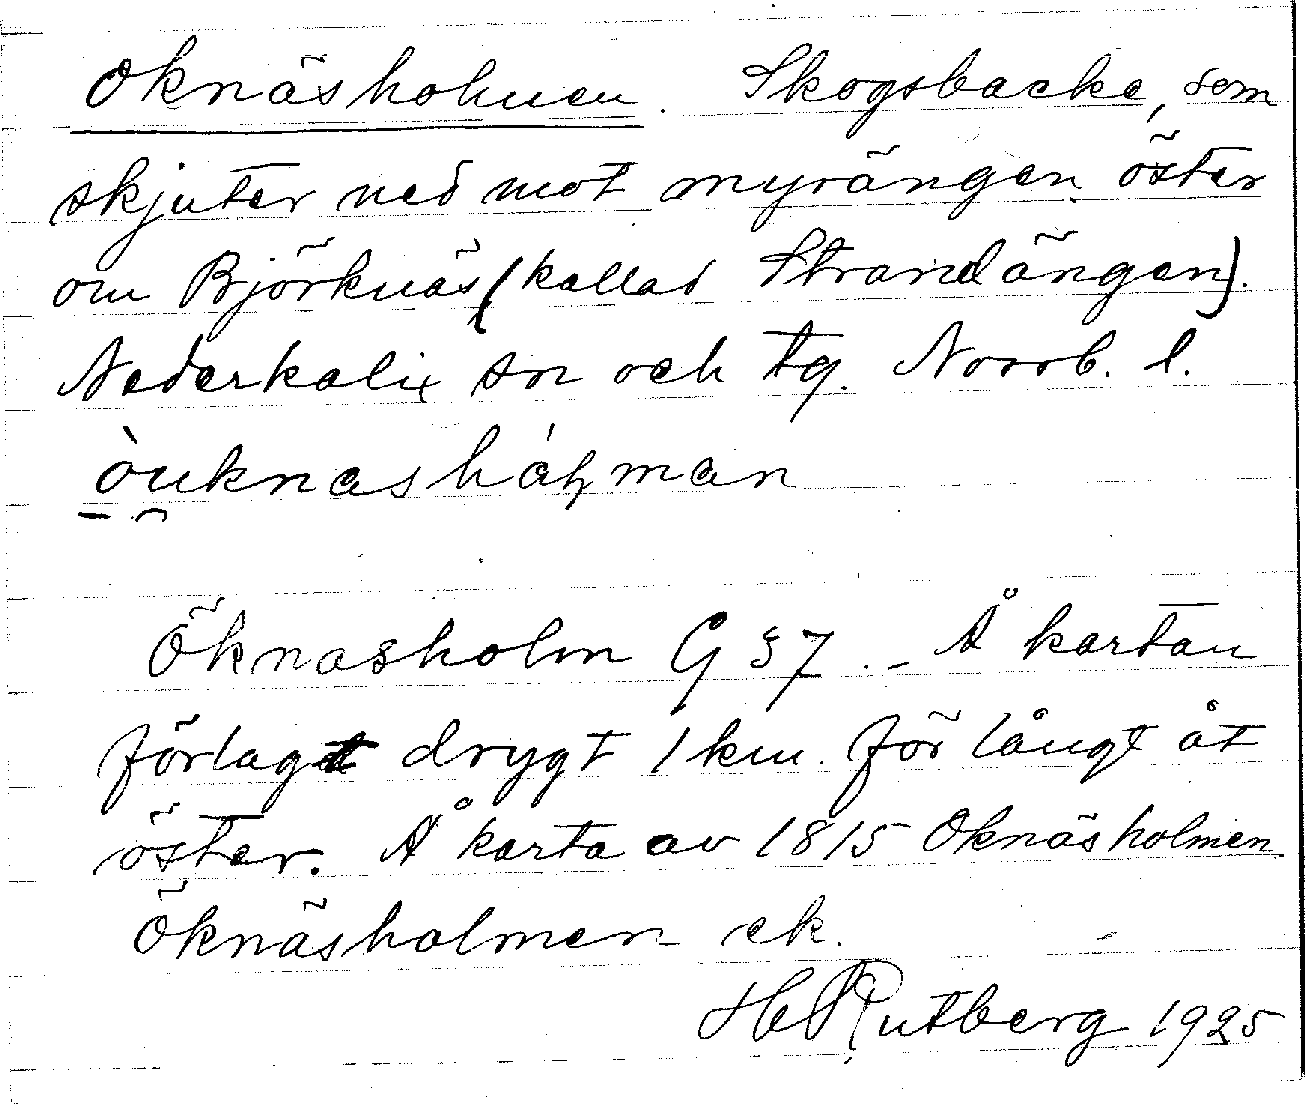 Oknäsholmen. Skogsbacke, som
skjuter ned mot myrängen öster
om Björknäs (kallad Strandängen).
Nederkalix sn och tg. Norrb. l.
òuknasháɫman
Öknäsholm G § 7. - Å kartan
förlagt drygt 1 km. för långt åt
öster. Å karta av 1815 Oknäsholmen
Öknäsholmen ek.
H Rutberg 1925